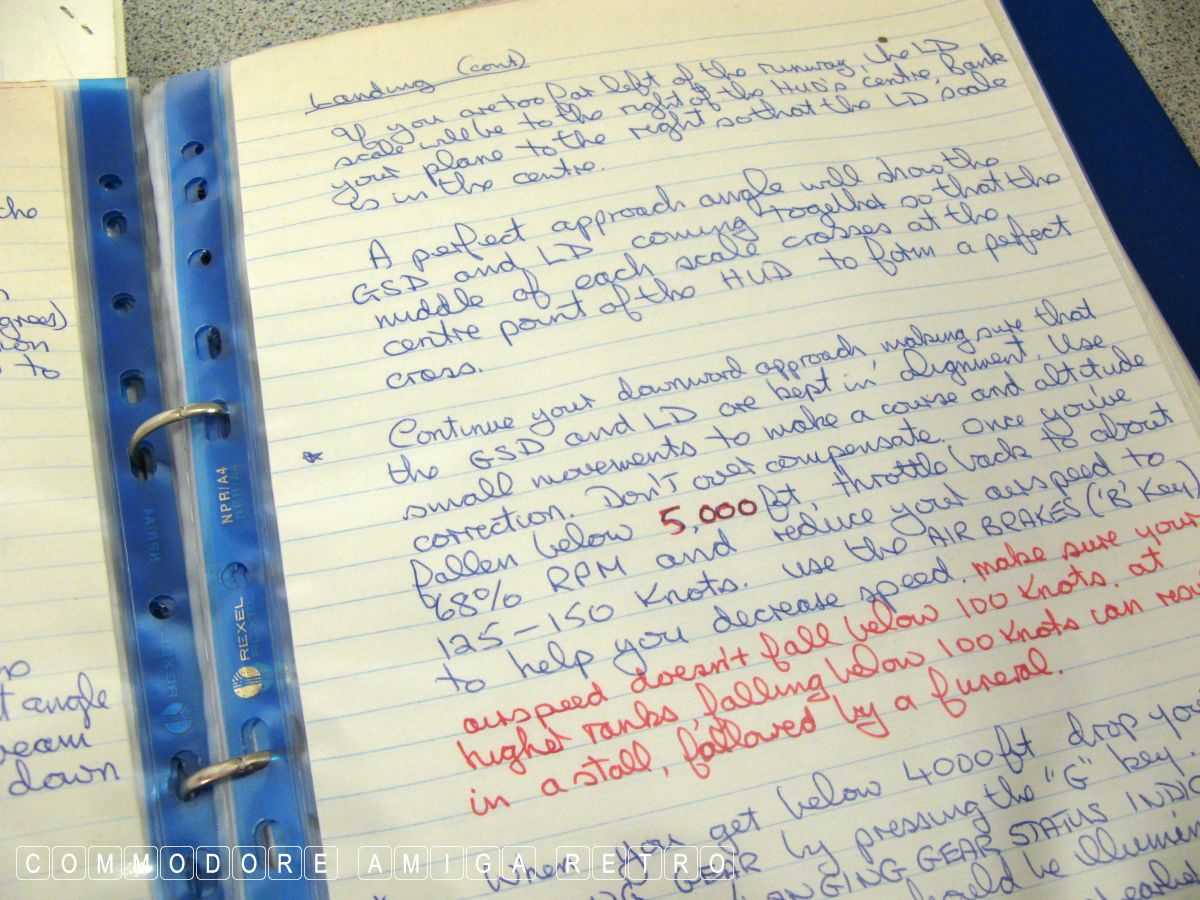 Landing (cont)
If you are too far left of the runway, the LD
scale will be to the right of the HUD's centre. Bank
your plane to the right so that the LD scale
is in the centre.
A perfect approach angle will show the
GSD and LD coming together so that the
middle of each scale crosses at the
centre point of the HUD to form a perfect
cross.
* Continue your downward approach, making sure that
the GSD and LD are kept in alignment. Use
small movements to make a course and altitude
correction. Don't over compensate. Once you've
fallen below 5,000ft, throttle back to about
68% RPM and reduce your airspeed to
125-150 Knots. use the AIR BRAKES ('B' Key)
to help you decrease speed. make sure your
airspeed doesn't fall below 100 Knots. at
higher ranks, falling below 100 Knots can
in a stall, followed by a funeral.
When you get below 4000ft drop
GEAR by pressing the "G" key.
GEAR STATUS
should be
NPR/A4
REXEL
grees)
to
angle
down
COMMODORE AMIGA RETRO